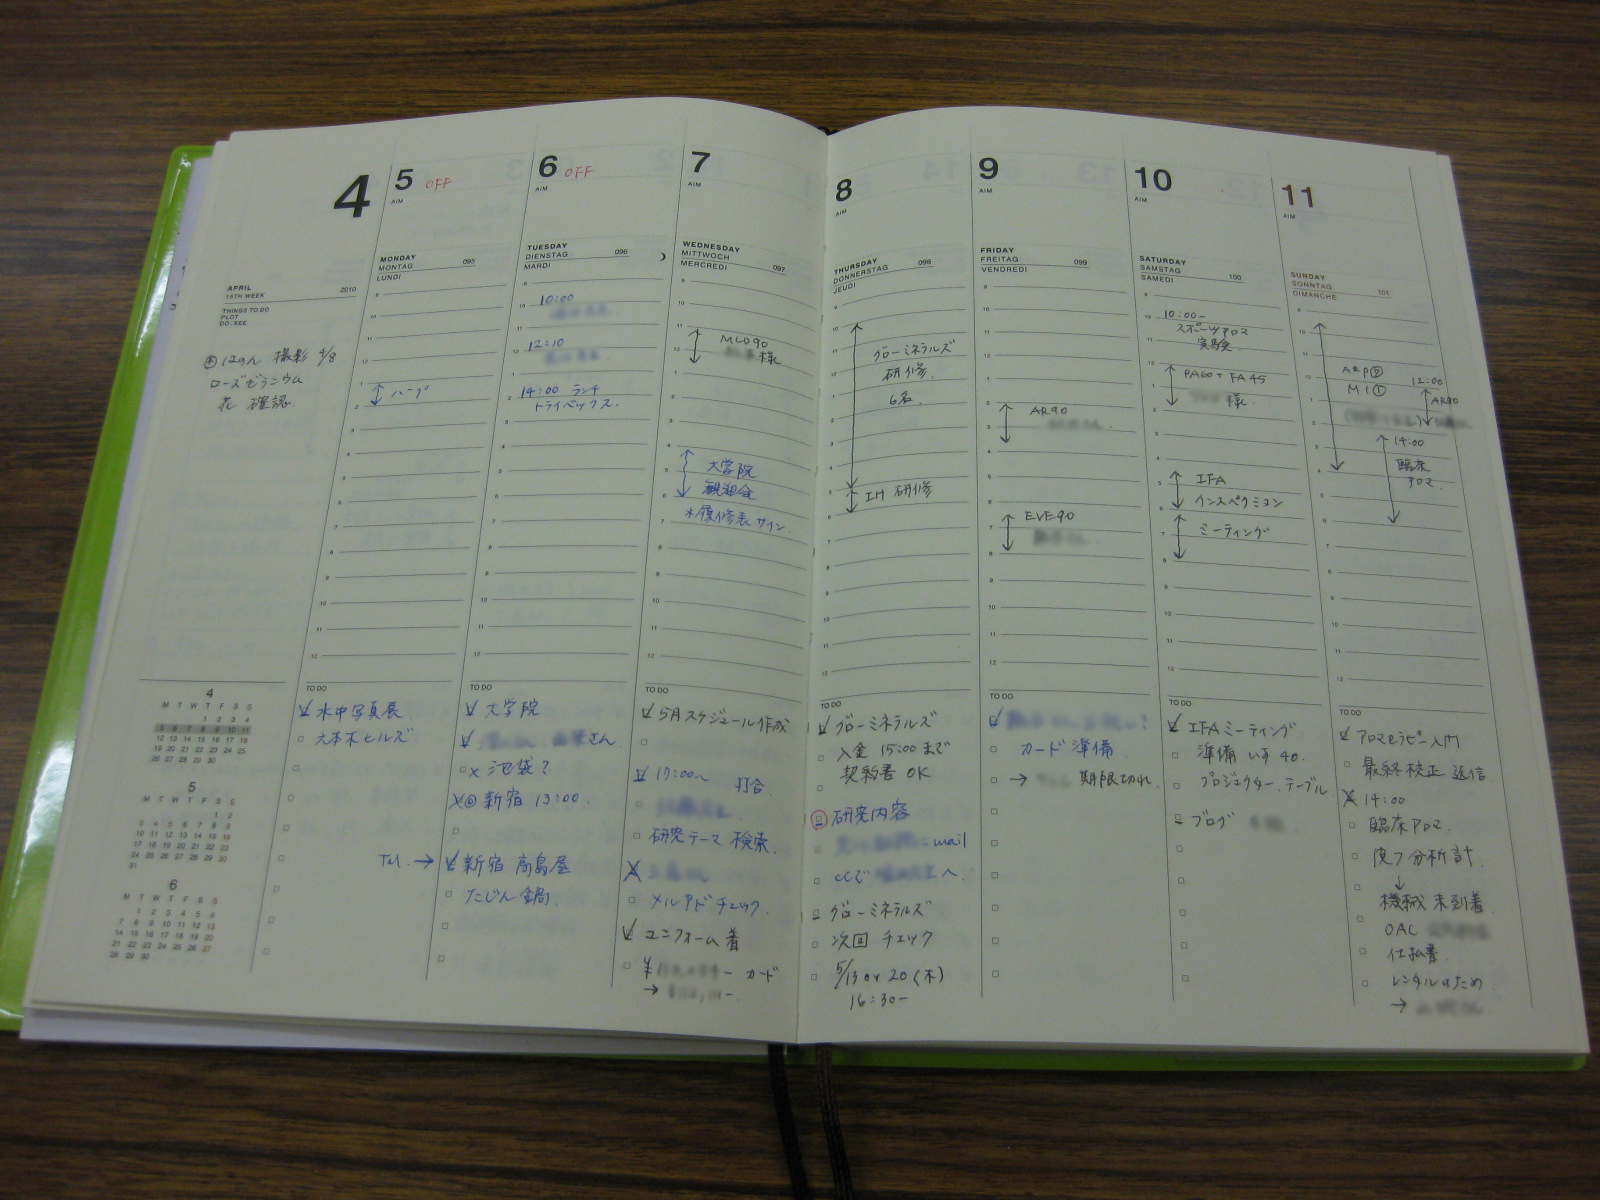 4
APRIL 2010
15TH WEEK
THINGS TO DO
PLOT
DO/SEE
撮影 4/8
ローズゼラニウム
花 確認
5 OFF
AIM
MONDAY
MONTAG 095
LUNDI
ハーブ
TO DO
水中写真展
六本木ヒルズ
6 OFF
AIM
TUESDAY
DIENSTAG 096
MARDI
10:00
12:10
14:00 ランチ
トライベックス.
TO DO
大学院
さん
× 池袋?
新宿 13:00
Tel. → 新宿 高島屋
たじん鍋.
7
AIM
WEDNESDAY
MITTWOCH 097
MERCREDI
MLD90
様
大学院
歓迎会
サイン.
TO DO
5月スケジュール作成
17:00~ 打合
研究テーマ 検索.
メルアドチェック.
ユニフォーム着
カード
→
8
AIM
THURSDAY
DONNERSTAG 098
JEUDI
グローミネラルズ
研修.
6名.
研修
TO DO
グローミネラルズ
入金 15:00まで
契約書 OK
研究内容
にmail
CCで へ.
グローミネラルズ
次回 チェック
5/13 or 20 (木)
16:30-
9
AIM
FRIDAY
FREITAG 099
VENDREDI
AR90
EVE90
カード 準備.
→ 期限切れ.
10
AIM
SATURDAY
SAMSTAG 100
SAMEDI
10:00-
スポーツアロマ
実験.
PA60+FA45
様.
IFA
インスペクション
ミーティング
TO DO
IFAミーティング
準備 いす 40.
プロジェクター.テーブル.
ブログ
11
AIM
SUNDAY
SONNTAG 101
DIMANCHE
12:00
AR90
14:00
臨床
アロマ.
TO DO
アロマセラピー入門
最終校正 返信.
14:00
臨床アロマ.
分析計.
↓
機械 未到着.
OAC
レンタルのため
→
4
M T W T F S S
1 2 3 4
5 6 7 8 9 10 11
12 13 14 15 16 17 18
19 20 21 22 23 24 25
26 27 28 29 30
5
M T W T F S S
1 2
3 4 5 6 7 8 9
10 11 12 13 14 15 16
17 18 19 20 21 22 23
24 25 26 27 28 29 30
31
6
M T W T F S S
1 2 3 4 5 6
7 8 9 10 11 12 13
14 15 16 17 18 19 20
21 22 23 24 25 26 27
28 29 30